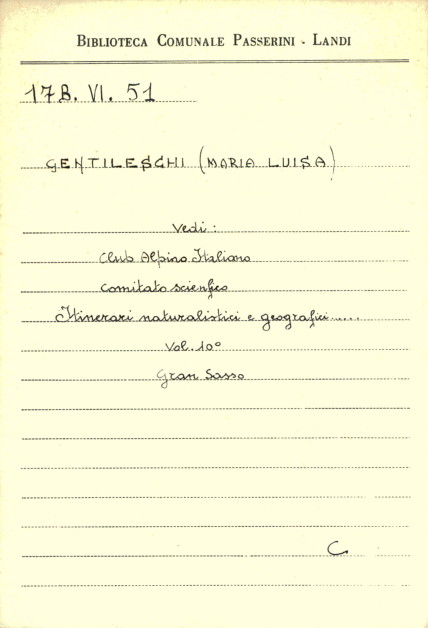 BIBLIOTECA COMUNALE PASSERINI - LANDI
17B. VI. 51
GENTILESCHI (MARIA LUISA)
Vedi:
Club Alpino Italiano
Comitato scienfico
Itinerari naturalistici e geografici.....
Vol. 10°
Gran Sasso
C